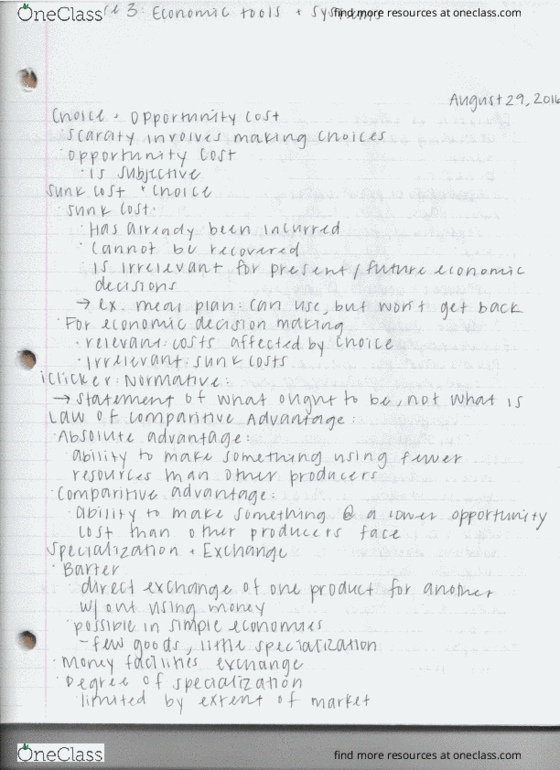 OneClass
3: Economic tools + Systems
find more resources at oneclass.com
August 29, 2016
Choice + Opportunity Cost
scarcity involves making choices
·opportunity cost
·is subjective
Sunk Cost + Choice
·sunk cost:
·Has already been incurred
·Cannot be recovered
·is irrelevant for present/future economic
decisions
→ ex. meal plan: can use, but won't get back
·For economic decision making
·relevant: costs affected by choice
·irrelevant: sunk costs
iClicker: Normative:
→ statement of what ought to be, not what is
Law of Comparitive Advantage:
·Absolute advantage:
ability to make something using fewer
resources than other producers
·Comparitive advantage:
·ability to make something @ a lower opportunity
cost than other producers face
Specialization + Exchange
·Barter
direct exchange of one product for another
w/out using money
·possible in simple economies
- few goods, little specialization
·Money facilities exchange
·Degree of specialization
limited by extent of market
OneClass
find more resources at oneclass.com